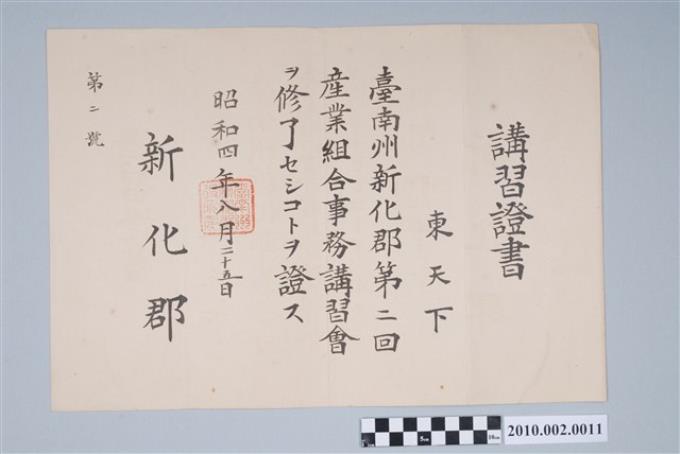 講習證書
東天下
臺南州新化郡第二回
産業組合事務講習會
ヲ修了セシコトヲ證ス
昭和四年八月二十五日
新化郡
第二號
5cm
10cm
2010.002.0011